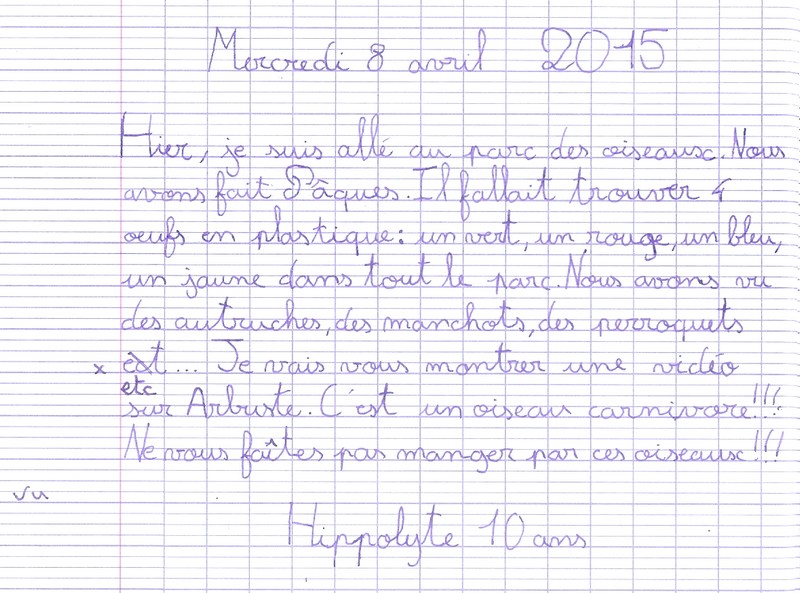 Mercredi 8 avril 2015
Hier, je suis allé au parc des oiseaux. Nous
avons fait Pâques. Il fallait trouver 4
oeufs en plastique: un vert, un rouge, un bleu,
un jaune dans tout le parc. Nous avons vu
des autruches, des manchots, des perroquets
x èxt... Je vais vous montrer une vidéo
etc
sur Arbuste. C'est un oiseau carnivore!!!
Ne vous faîtes pas manger par ces oiseaux!!!
vu
Hippolyte 10 ans